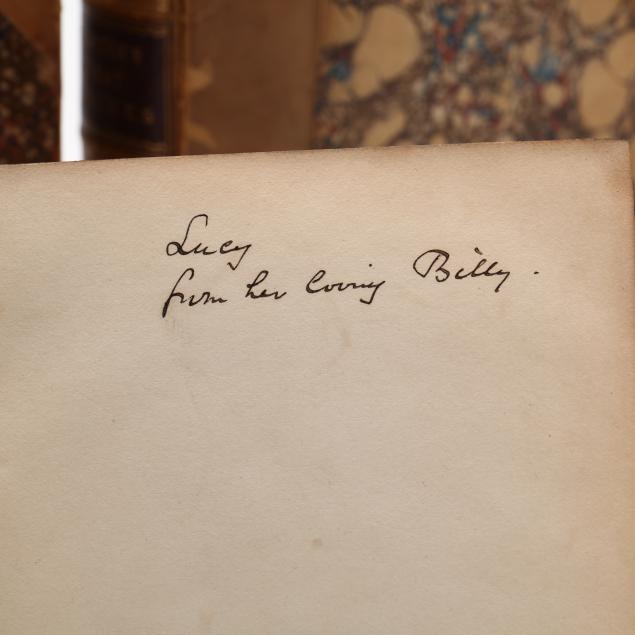 Lucy
from her loving Billy.